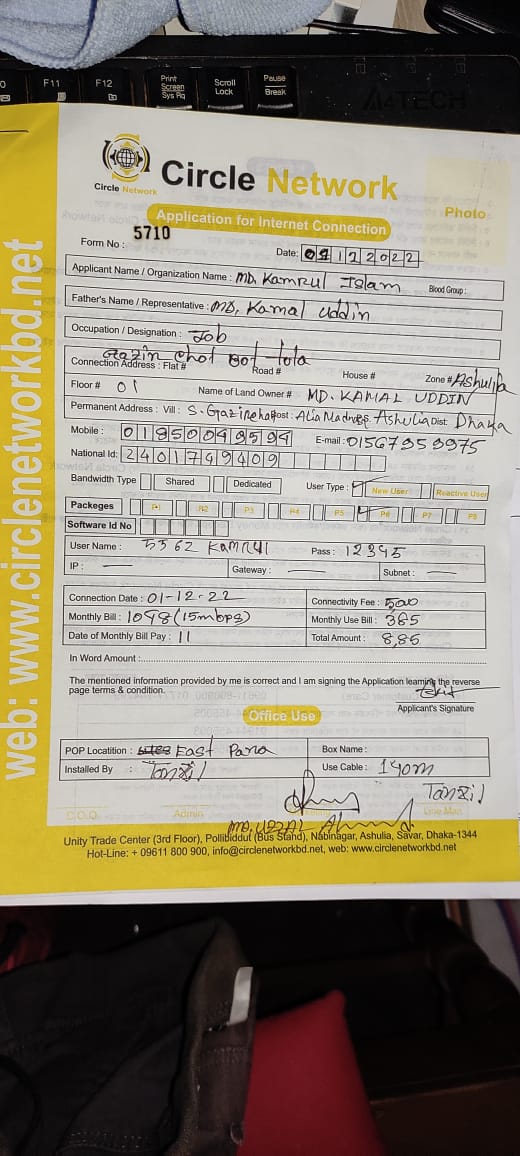 F11
F12
Print
Screen
Sys Rq
Scroll
Lock
Pause
Break
A4TECH
Circle Network
Circle Network
Application for Internet Connection
Photo
Form No : 5710
Date: 01122022
Applicant Name / Organization Name : MD. Kamrul Islam Blood Group :
Father's Name / Representative : MD. Kamal Uddin
Occupation / Designation : Job
Connection Address : Flat # Gazir chot Bot tola Road # House # Zone # Ashulia
Floor # 01 Name of Land Owner # MD. KAMAL UDDIN
Permanent Address : Vill : Post : Alia Madrasa Ashulia Dist: Dhaka
Mobile : E-mail :
National Id: 2401749409
Bandwidth Type Shared Dedicated User Type : New User Reactive User
Packeges P1 P2 P3 P4 P5 P6 P7 P8
Software Id No
User Name : 5362 Kamrul Pass : 12345
IP : Gateway : Subnet :
Connection Date : 01-12-22 Connectivity Fee : 500
Monthly Bill : (15mbps) Monthly Use Bill : 385
Date of Monthly Bill Pay : 11 Total Amount : 8,85
In Word Amount :
The mentioned information provided by me is correct and I am signing the Application learning the reverse
page terms & condition.
Applicant's Signature
Office Use
POP Locatition : East Para Box Name :
Installed By : Tanzil Use Cable : 140m
Tanzil
C.O.O Admin Line Man
Unity Trade Center (3rd Floor), Pollibiddut (Bus Stand), Nabinagar, Ashulia, Savar, Dhaka-1344
Hot-Line: + 09611 800 900, info@circlenetworkbd.net, web: www.circlenetworkbd.net
web: www.circlenetworkbd.net